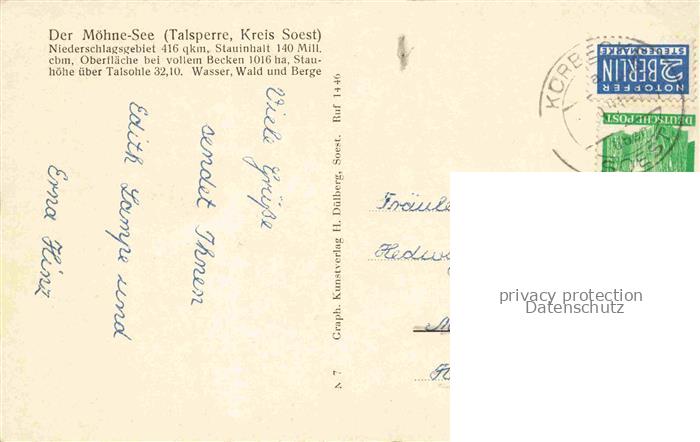 Der Möhne-See (Talsperre, Kreis Soest)
Niederschlagsgebiet 416 qkm, Stauinhalt 140 Mill.
cbm, Oberfläche bei vollem Becken 1016 ha, Stau-
höhe über Talsohle 32,10. Wasser, Wald und Berge
Viele Grüße
sendet Ihnen
Edith Lampe und
Erna Hinz
A 7 Graph. Kunstverlag H. Dülberg, Soest. Ruf 1446
NOTOPFER
2 BERLIN
STEUERMARKE
DEUTSCHE POST
KÖRBECKE
SOEST
Fräule
Hedwig
privacy protection
Datenschutz